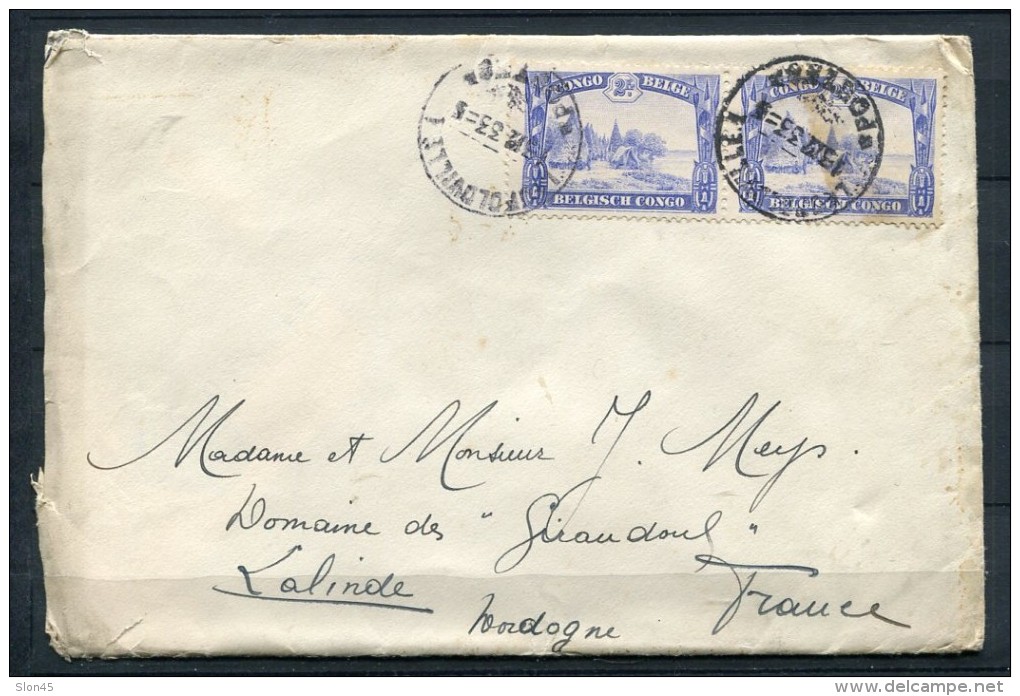 CONGO 2 BELGE CONGO BELGE
BELGISCH CONGO BELGISCH CONGO
LEOPOLDVILLE 1
Madame et Monsieur J. Meys.
Domaine des "Giraudoul"
Lalinde
Dordogne
France
Slon45
delcampe.net